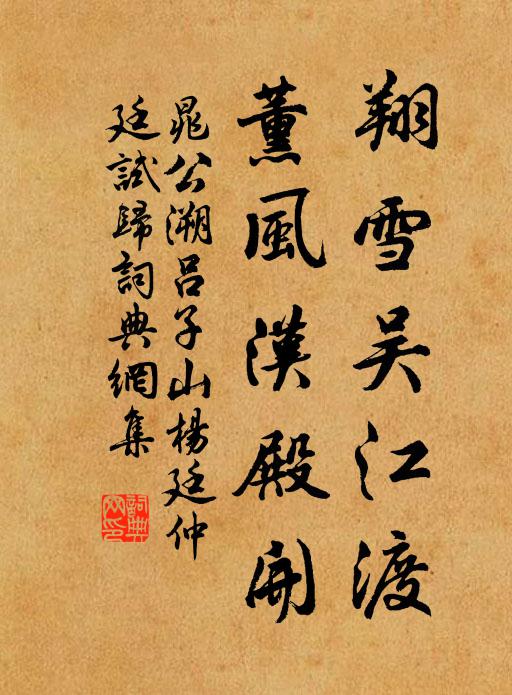 翔雪吴江渡
薰風漢殿開
晁公溯吕子山楊廷仲
廷試歸詞典網集
詞典網印